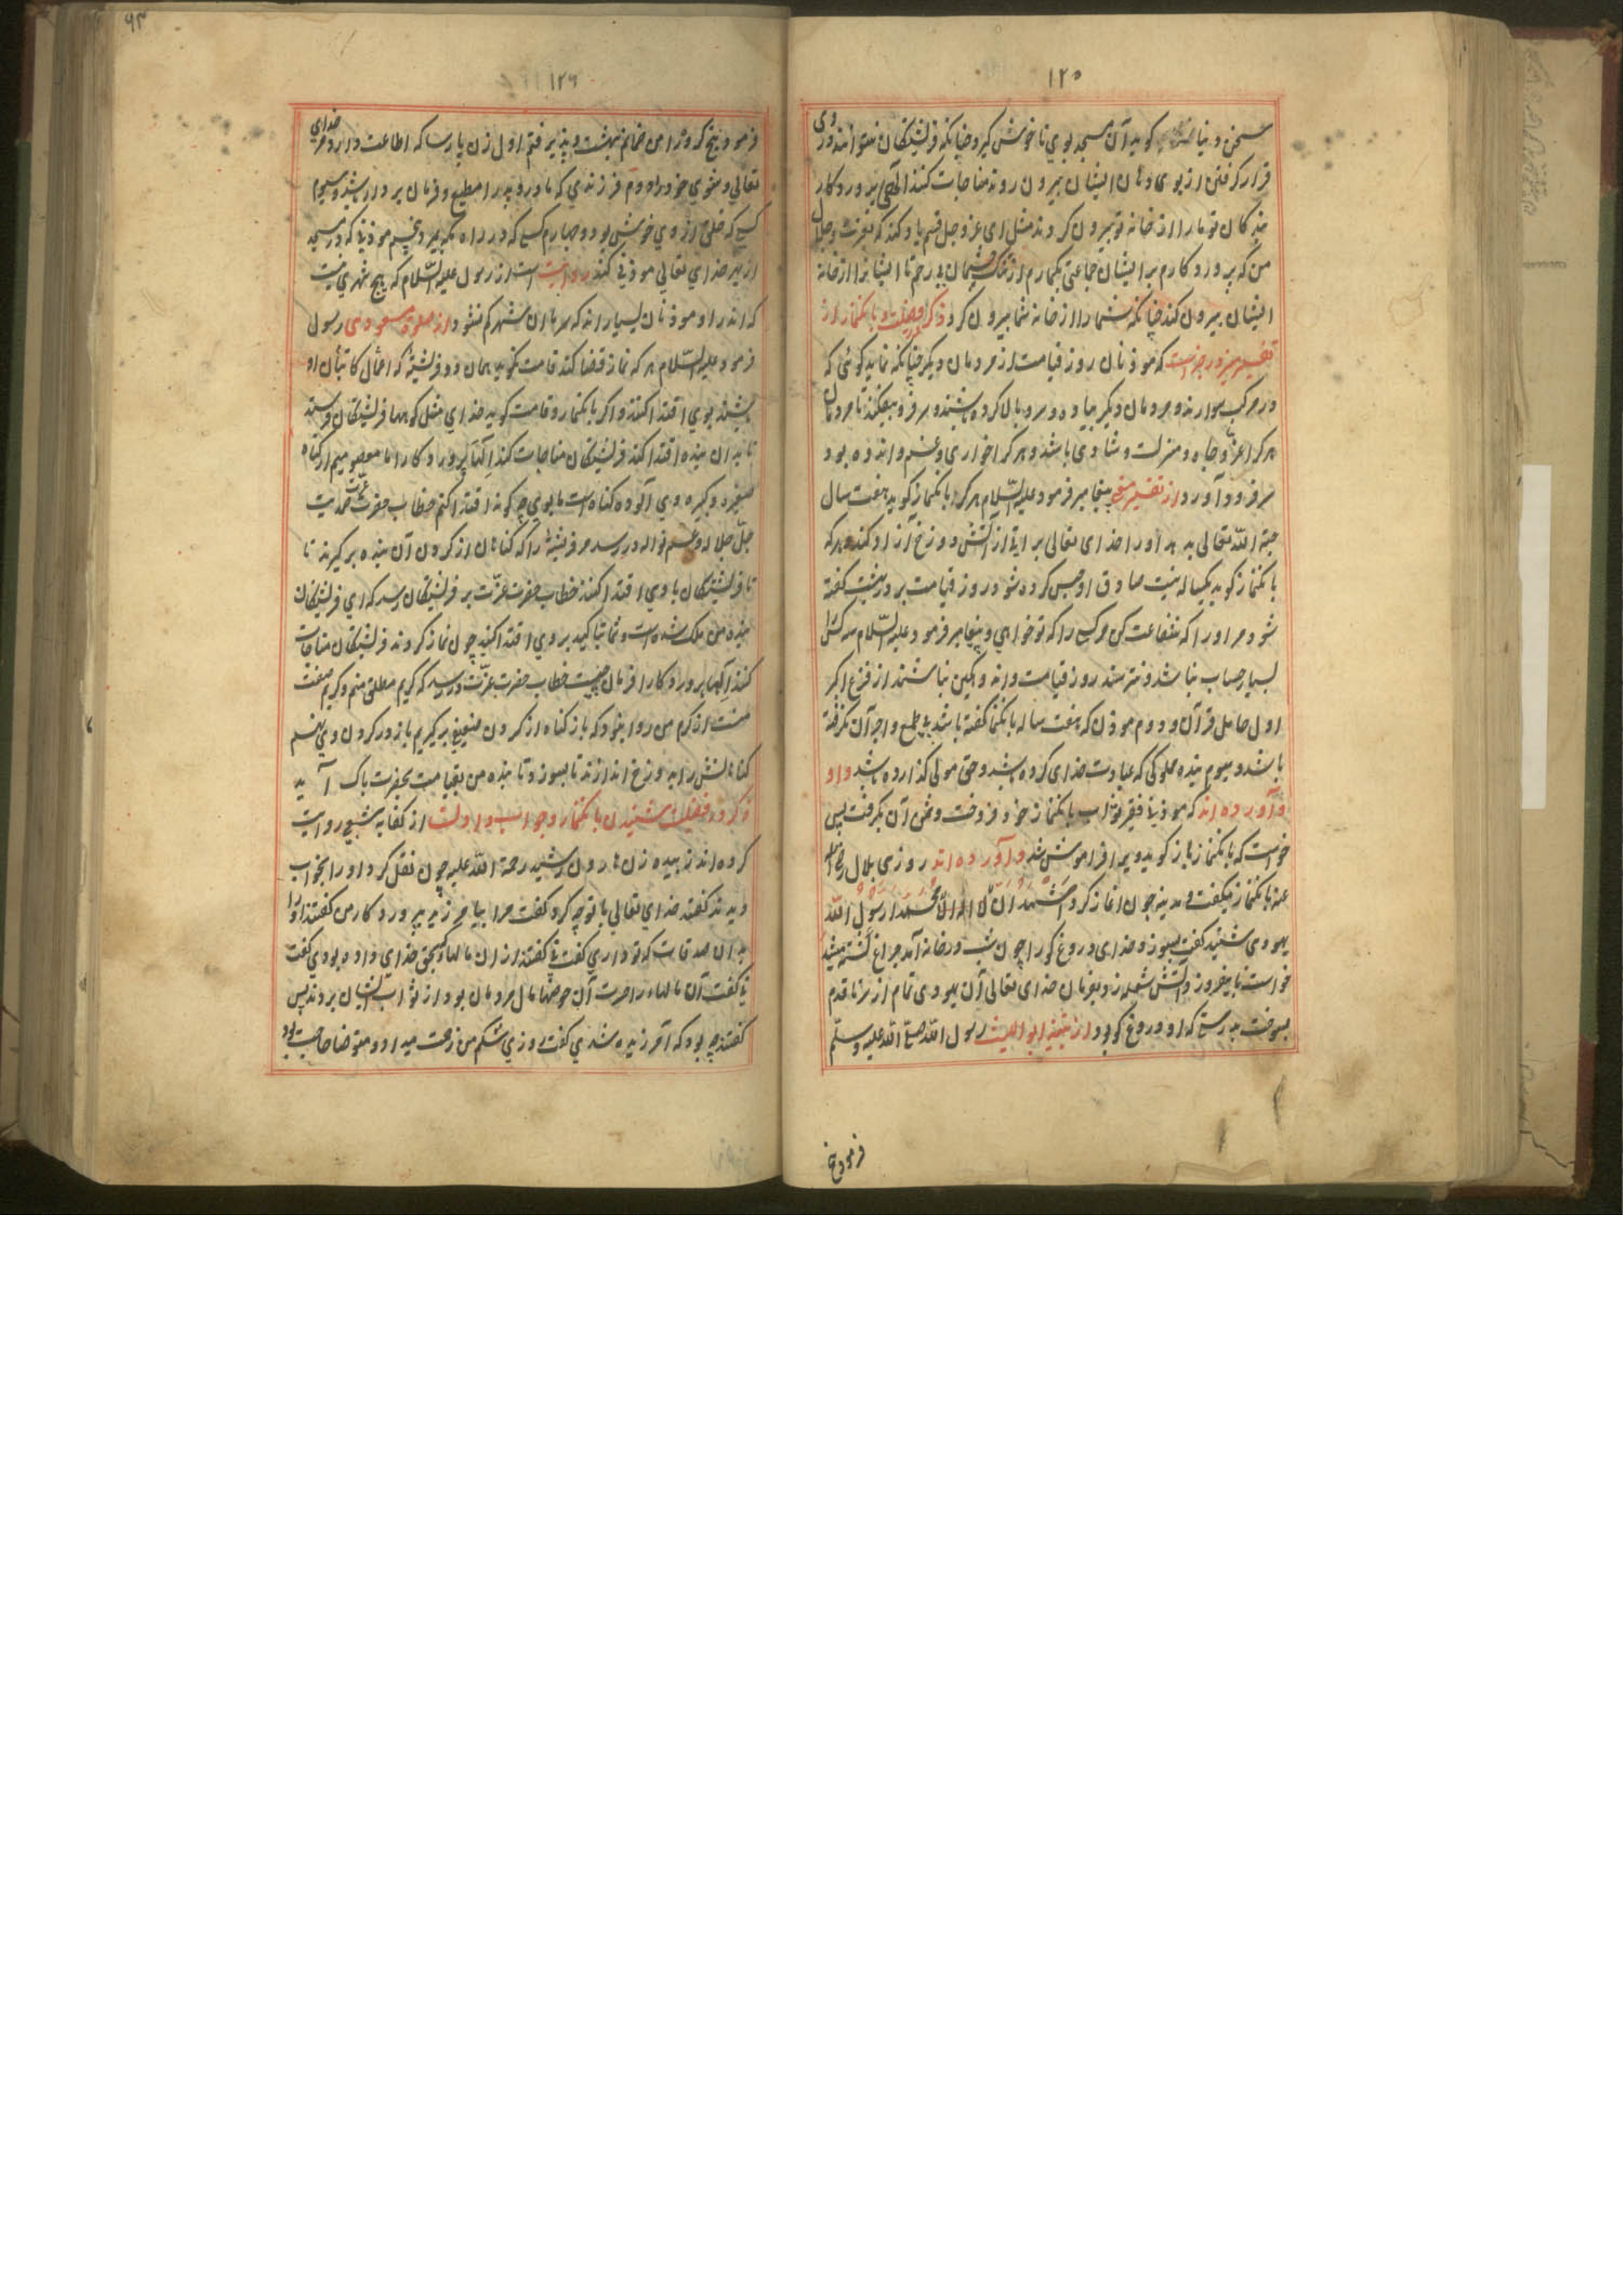 ۱۲۵
سخن دنیا گوید آن مسجد بوی ناخوش گیرد چنانکه فرشتگان نتوانند در وی
قرار گرفتن از بوی دهان ایشان بیرون روند مناجات کنند الهی پروردگار
بندگان تو ما را از خانه تو بیرون کردند خدای عزوجل قسم یاد کند که بعزت و جلال
من که پروردگارم بر ایشان جماعتی بگمارم از ترک چشمان بی رحم تا ایشانرا از خانه
ایشان بیرون کنند چنانکه شما را از خانه شما بیرون کردند ذکر در فضیلت بانگنماز از
تفسیر که موذنان روز قیامت از مردمان دیگر چنانکه نماید گوئی که
در مرکب سوارند و مردمان دیگر پیاده و سر و بالا کرده باشند و سر فرو نیفکنند تا مردمان
هر کرا عز و جاه و منزلت و شادی باشد و هر کرا خواری و غم و اندوه بود
سر فرود آورد از تفسیر پیغامبر فرمود علیه السلام هر که بانگنماز گوید هفت سال
حبة الله تعالی بدهد او را خدای تعالی براة از آتش دوزخ آزاد کند و هر که
بانگنماز گوید یکسال به نیت صادق او حبس کرده شود روز قیامت بر در بهشت گفته
شود مر او را که شفاعت کن هر کسی را که تو خواهی و پیغامبر فرمود علیه السلام سه کس را
بسیار حساب نباشد و نترسند روز قیامت و اندوهگین نباشند از فزع اکبر
اول حامل قرآن و دوم موذن که هفت ساله بانگنماز گفته باشد بی طمع و اجر آن نگرفته
باشد و سیوم بنده مملوکی که عبادت خدای کرده باشد و حق مولی گذارده باشد و او
و آورده اند که موذنی فقیر ثواب بانگنماز خود فروخت و ثمن آن بگرفت پس
خواست که بانگنماز باز گوید ویرا فراموش شد و آورده اند روزی بلال رضی الله
عنه بانگنماز میگفت در مدینه چون آغاز کرد اشهد ان لا اله الا الله محمدا رسول الله
یهودی شنید گفت بسوزد خدای دروغ گو را چون شب در خانه آمد چراغ کشته میشد
خواست تا بیفروزد آتش شعله زد بفرمان خدای تعالی آن یهودی تمام از سر تا قدم
بسوخت بدرستی که او دروغ گو بود از تنبیه ابو اللیث رسول الله صلی الله علیه وسلم
فرمود پنج
۶۳
۱۲۶
فرمود پنج کروه را من ضامنم بهشت و پذیرفتم اول زن پارسا که اطاعت دارد مر خدای
تعالی و شوی خود را دوم فرزندی که مادر و پدر را مطیع و فرمان بردار باشد و سیوم
کسی که خلق از وی خوش بود و چهارم کسی که در راه مکه بمیرد و پنجم موذنی که در مسجد
از بهر خدای تعالی موذنی کند روایت است از رسول علیه السلام که هیچ شهری نیست
که اندر او موذنان بسیارند که سرمای آن شهر کم نشود از صلوة مسعودی رسول
فرمود علیه السلام هر که نماز قضا کند قامت گوید همان دو فرشته که اعمال کاتبان او
باشند بوی اقتدا کنند و اگر بانگنماز و قامت گوید خدای مثل کوهها فرشتگان فرستد
تا بدان بنده اقتدا کنند فرشتگان مناجات کنند الهنا پروردگارا ما معصومیم از گناه
صغیره و کبیره و وی آلوده گناه است ما بوی چگونه اقتدا کنیم خطاب حضرت عزت صمدیت
جل جلاله و عم نواله در رسد مر فرشته را که گناهان از گردن آن بنده برگیرند تا
تا فرشتگان با وی اقتدا کنند خطاب حضرت عزت بر فرشتگان رسد که ای فرشتگان
بنده من پاک شده است و شما پاکید بر وی اقتدا کنید چون نماز کردند فرشتگان مناجات
کنند الها پروردگارا فرمان چیست خطاب حضرت عزت در رسید که کریم مطلق منم و کریم صفت
منست از کرم من روا نبود که باز گناه از گردن ضعیف برگیریم باز در گردن وی نهیم
گناهانش را بدوزخ اندازند تا بسوزد تا بنده من بقیامت بحضرت پاک آید
ذکر در فضیلت شنیدن بانگنماز و جواب دادن از کفایه شعبی روایت
کرده اند زبیده زن هارون رشید رحمة الله علیه چون نقل کرد او را بخواب
دیدند گفتند خدای تعالی با تو چه کرد گفت مرا بیامرزید پروردگار من گفتند او را
بدان صدقات که تو داری گفت نا گفتند از آن مالها که بحق خدای داده بودی گفت
نا گفت آن مالها را حرمت آن حوضها مال مردمان بود از ثواب ایشان بردند پس
گفتند چه بود که آمرزیده شدی گفت روزی شکم من زحمت میداد و متوضا حاجت بود